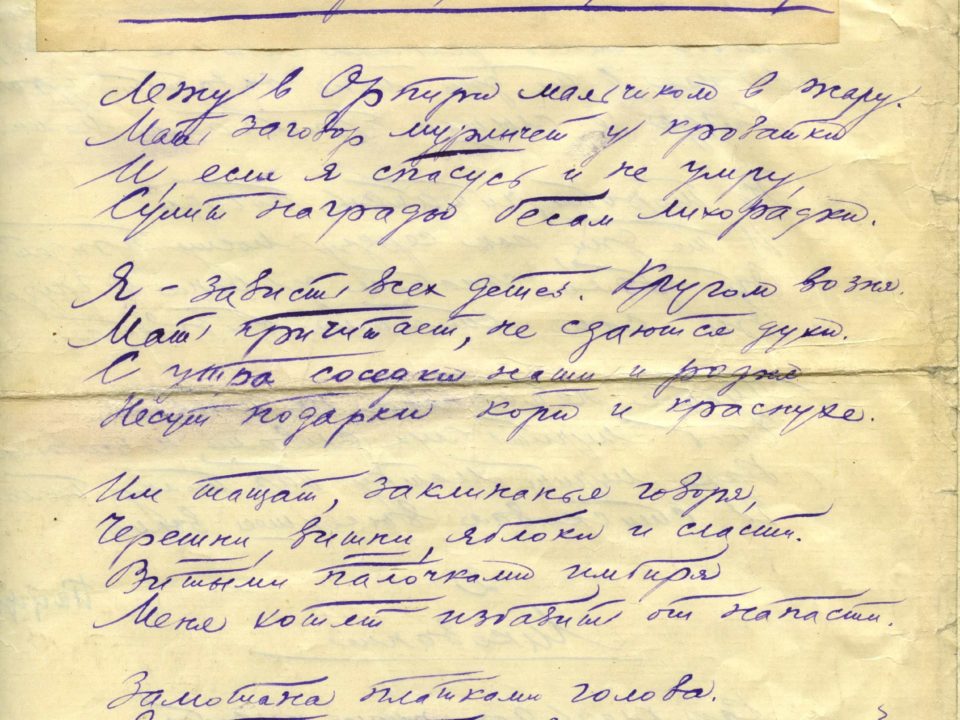 Лежу в Орпири мальчиком в жару.
Мать заговор мурлычет у кроватки
И, если я спасусь и не умру,
Сулит награды бесам лихорадки.
Я – зависть всех детей. Кругом возня.
Мать причитает, не сдаются духи.
С утра соседки наши и родня
Несут подарки кори и краснухе.
Им тащат, заклинанья говоря,
Черешни, вишни, яблоки и сласти.
Витыми палочками имбиря
Меня хотят избавить от напасти.
Замотана платками голова.